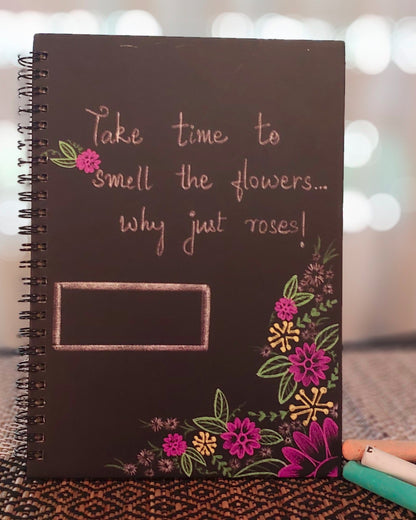 Take time to
smell the flowers...
why just roses!